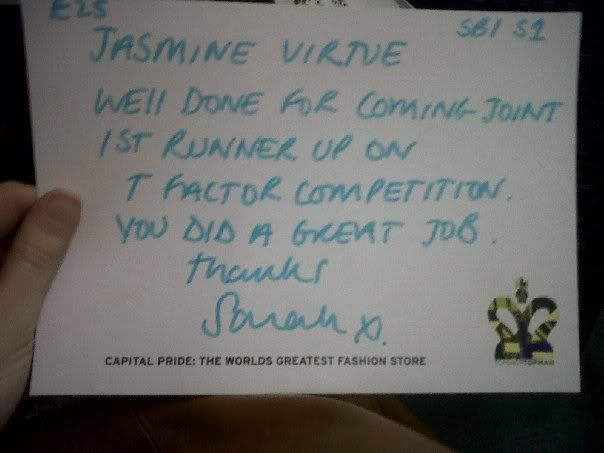 E25
SB1 S1
JASMINE VIRTUE
WELL DONE FOR COMING JOINT
1ST RUNNER UP ON
T FACTOR COMPETITION.
YOU DID A GREAT JOB.
Thanks
Sarah x.
CAPITAL PRIDE: THE WORLDS GREATEST FASHION STORE
TOPMAN